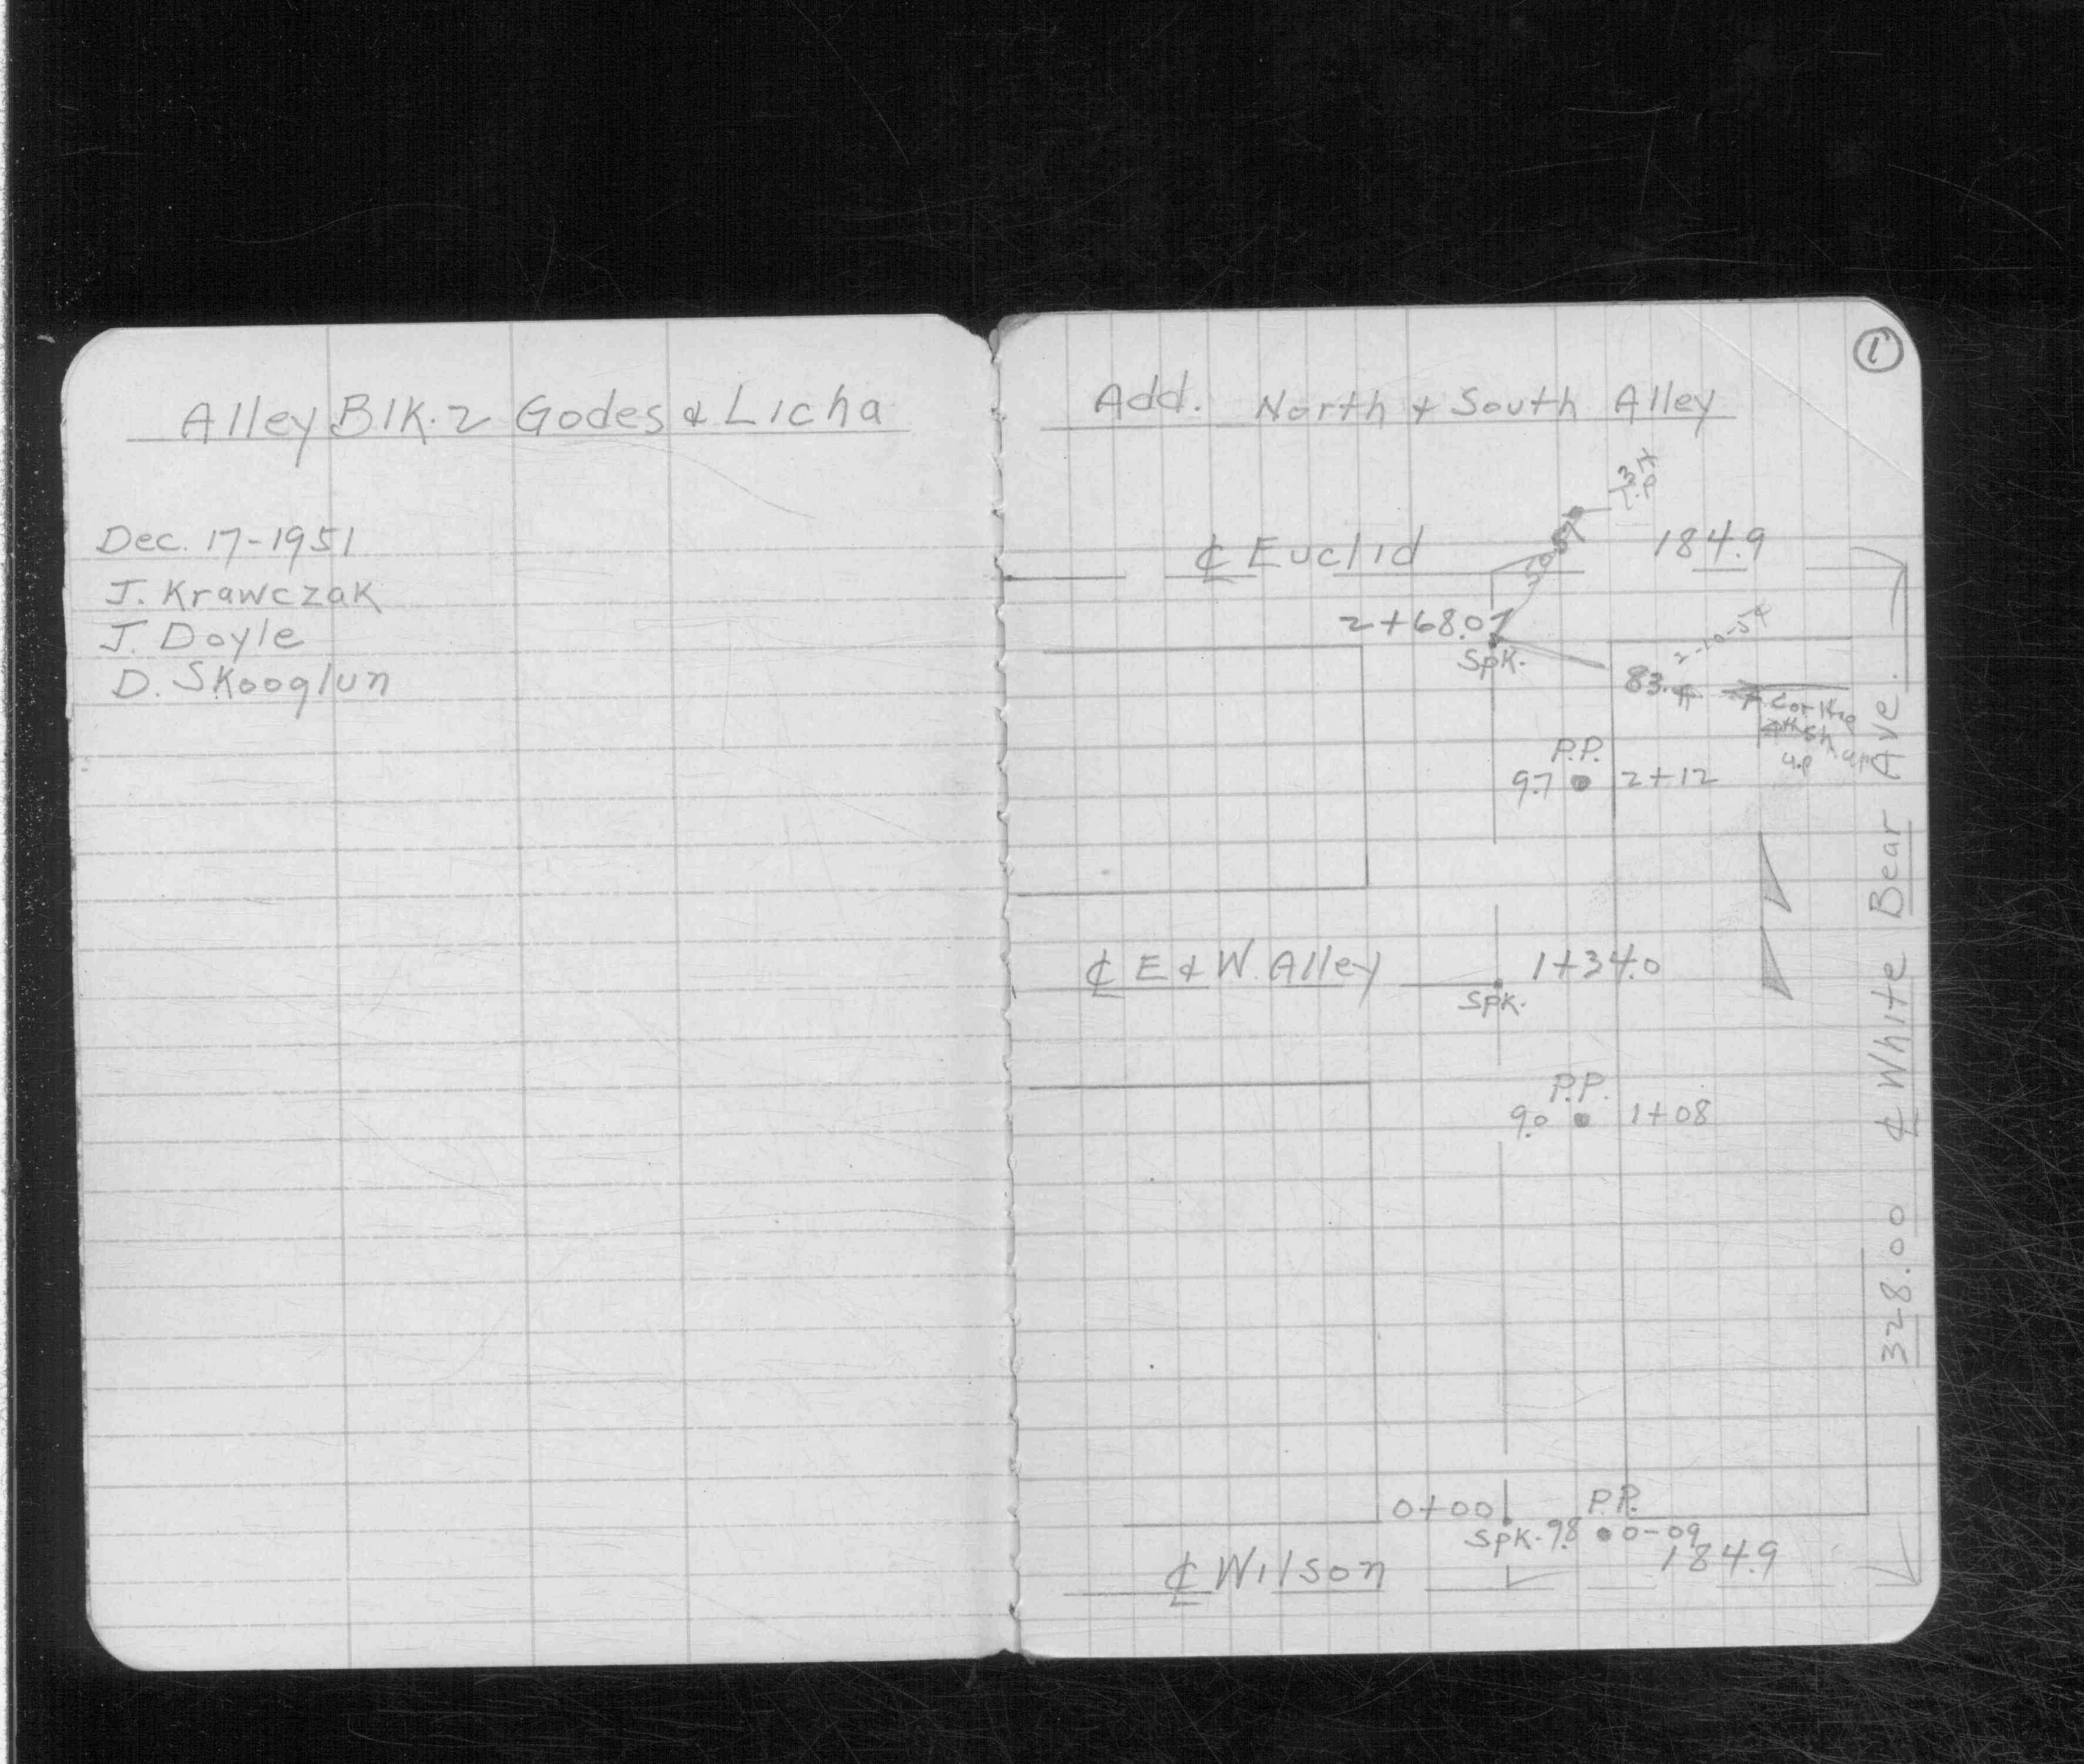 Alley Blk. 2 Godes & Licha
Dec. 17-1951
J. Krawczak
J. Doyle
D. Skooglun
1
Add. North & South Alley
℄ Euclid
184.9
2+68.07
Spk.
2-10-54
P.P.
9.7
2+12
℄ E & W. Alley
1+34.0
Spk.
P.P.
9.0
1+08
℄ White Bear Ave.
328.00
0+00
P.P.
Spk. 9.8 0-09
184.9
℄ Wilson